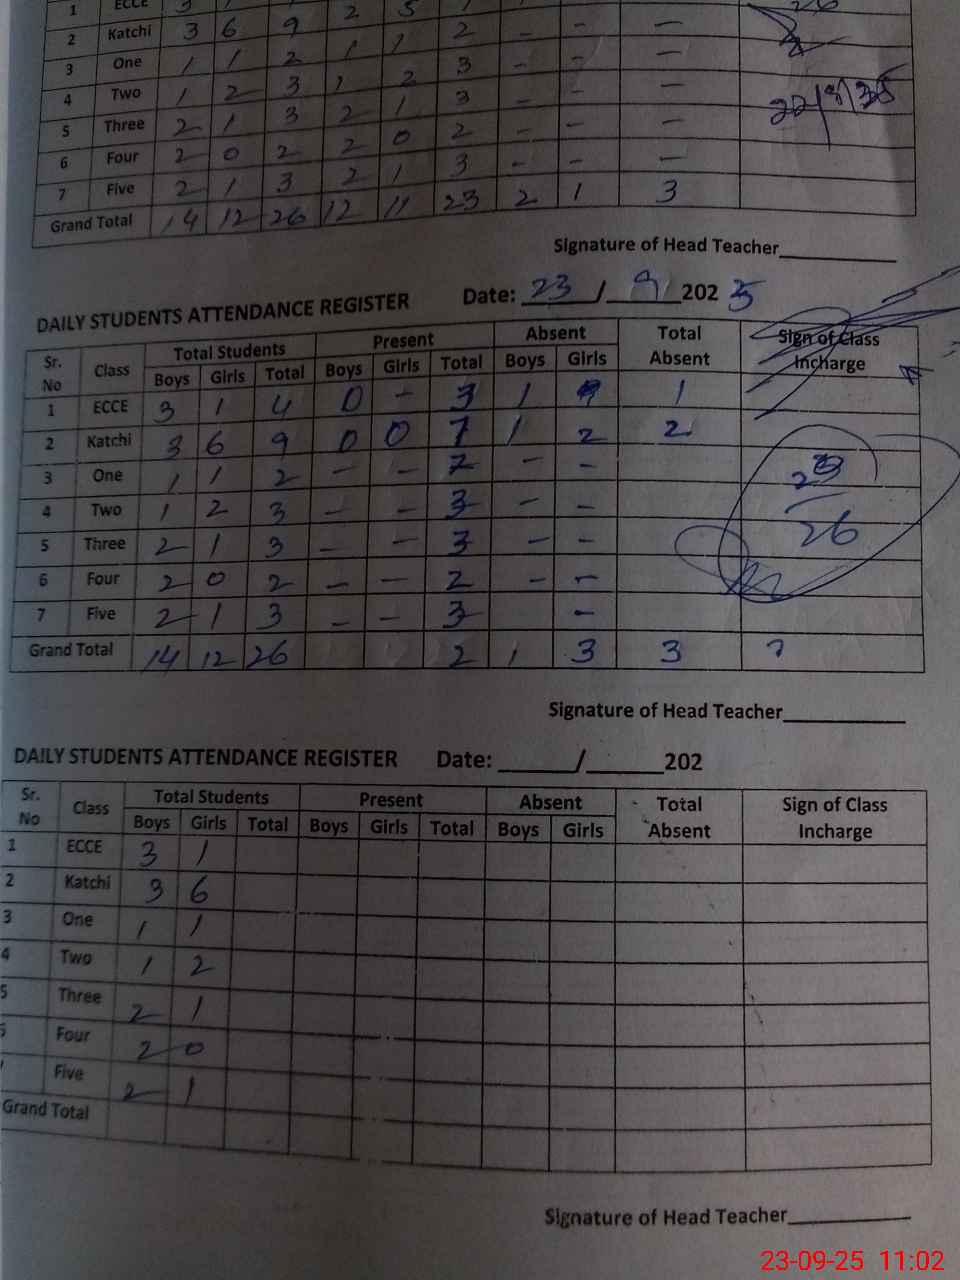 1 ECCE 3
2 Katchi 3 6 9 2 5 2 - - -
3 One 1 1 2 1 1 2 - - -
4 Two 1 2 3 1 2 3 - - -
5 Three 2 1 3 2 1 3 - - -
6 Four 2 0 2 2 0 2 - - -
7 Five 2 1 3 2 1 3 - - -
Grand Total 14 12 26 12 11 23 2 1 3
Signature of Head Teacher
DAILY STUDENTS ATTENDANCE REGISTER Date: 23 / 9 2025
Sr. No Class Total Students Present Absent Total Absent Sign of Class Incharge
Boys Girls Total Boys Girls Total Boys Girls
1 ECCE 3 1 4 0 - 3 1 1
2 Katchi 3 6 9 0 0 7 1 2 2
3 One 1 1 2 - - 2 - -
4 Two 1 2 3 - - 3 - -
5 Three 2 1 3 - - 3 - -
6 Four 2 0 2 - - 2 - -
7 Five 2 1 3 - - 3 -
Grand Total 14 12 26 2 1 3 3
23
26
Signature of Head Teacher
DAILY STUDENTS ATTENDANCE REGISTER Date: / 202
Sr. No Class Total Students Present Absent Total Absent Sign of Class Incharge
Boys Girls Total Boys Girls Total Boys Girls
1 ECCE 3 1
2 Katchi 3 6
3 One 1 1
4 Two 1 2
5 Three 2 1
Four 2 0
Five 2 1
Grand Total
Signature of Head Teacher
23-09-25 11:02